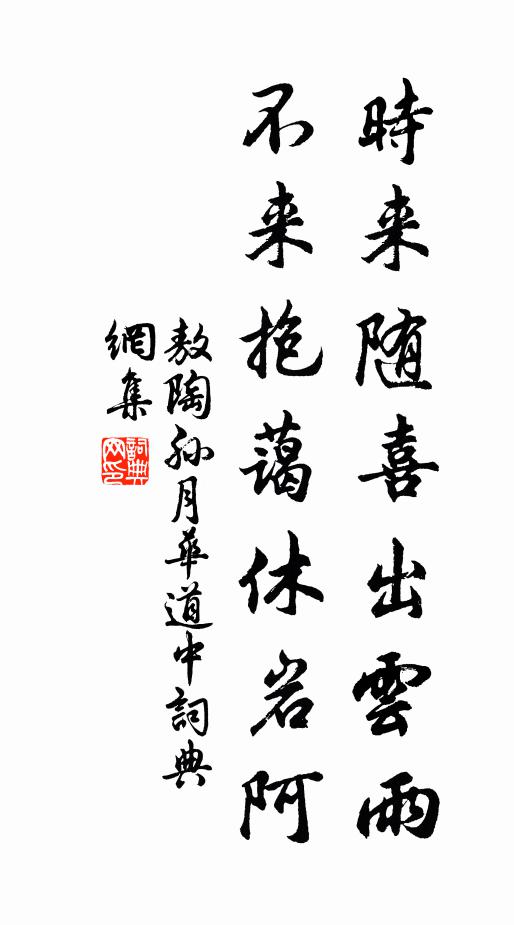 時来随喜出雲雨
不来抱藹休岩阿
敖陶孙月華道中詞典
網集
詞典
网印